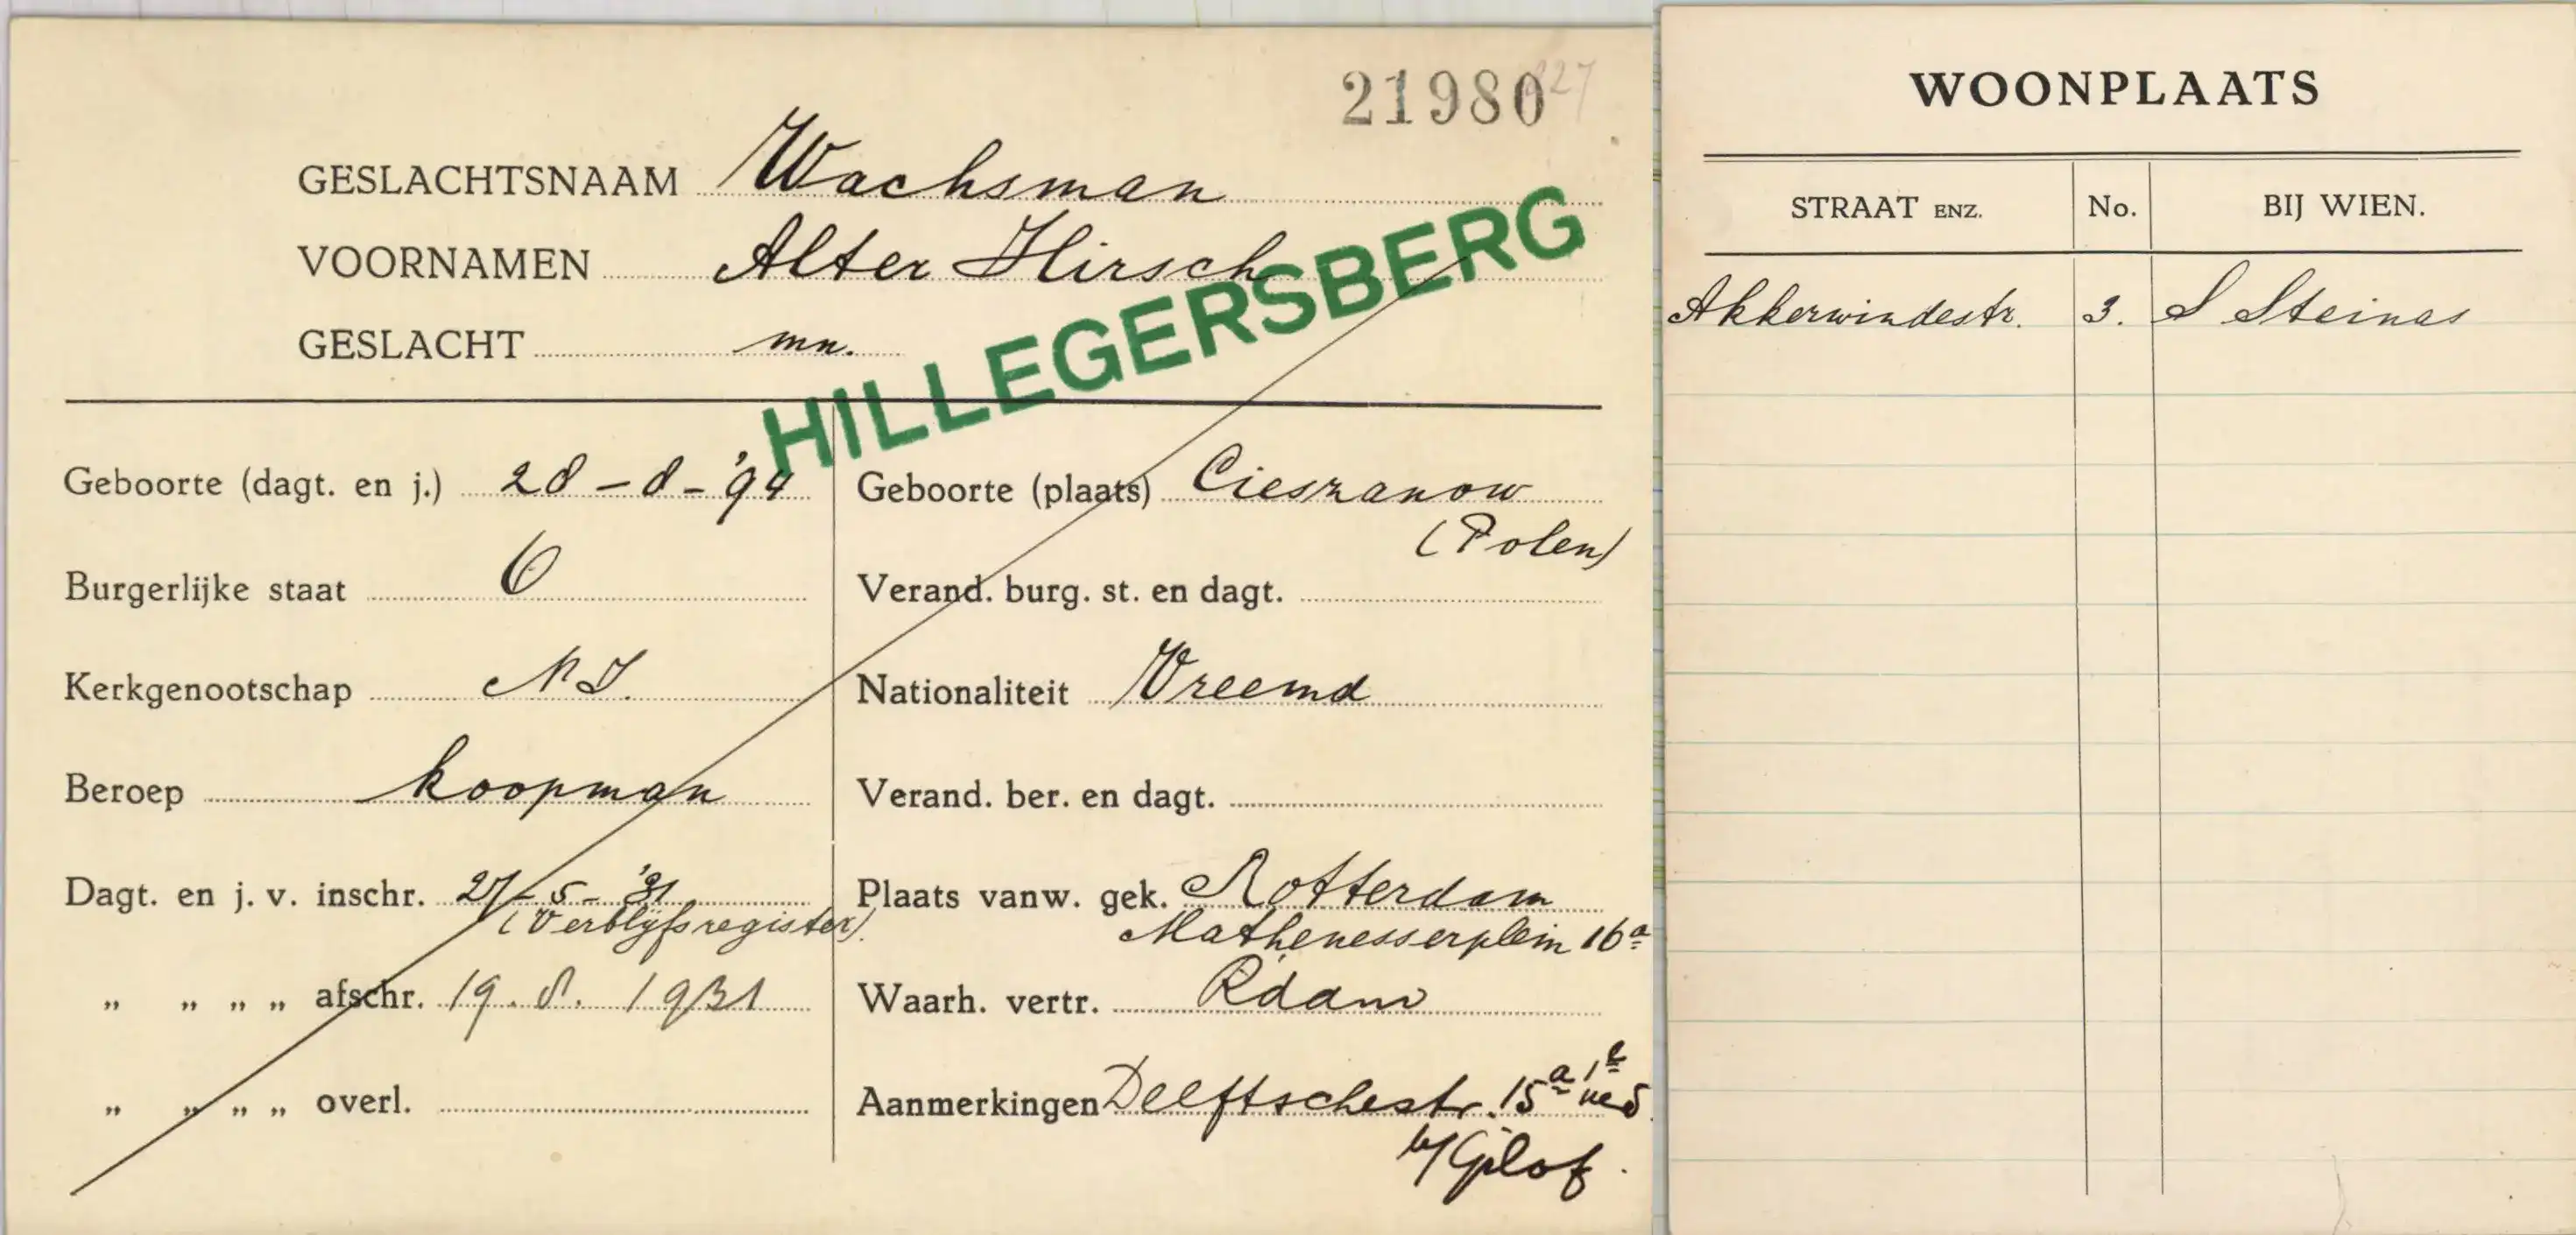 21980
GESLACHTSNAAM Wachsman
VOORNAMEN Alter Hirsch
GESLACHT mn.
HILLEGERSBERG
Geboorte (dagt. en j.) 28-8-'94
Geboorte (plaats) Cieszanow
(Polen)
Burgerlijke staat O
Verand. burg. st. en dagt.
Kerkgenootschap N I.
Nationaliteit Vreemd
Beroep koopman
Verand. ber. en dagt.
Dagt. en j. v. inschr. 27-5-'31
(Verblijfsregister)
Plaats vanw. gek. Rotterdam
Mathenesserplein 16a
„ „ „ „ afschr. 19.8.1931
Waarh. vertr. Rdam
„ „ „ „ overl.
Aanmerkingen Delftschestr. 15a 1e
b/ Gilof.
WOONPLAATS
STRAAT ENZ. No. BIJ WIEN.
Akkerwindestr. 3. S Steinas